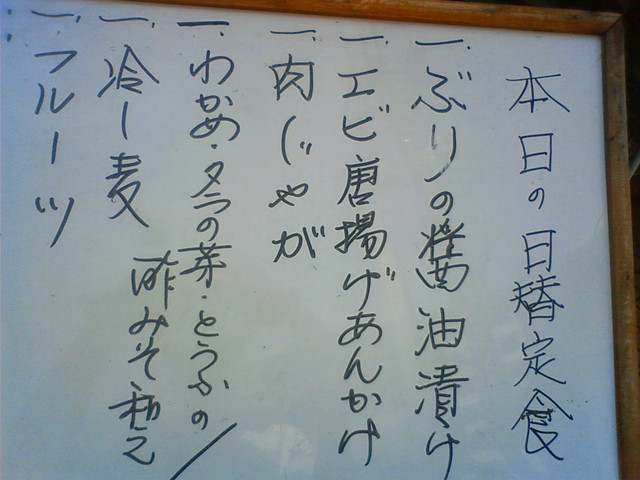 本日の日替定食
一.ぶりの醤油漬け
一.エビ唐揚げあんかけ
一.肉じゃが
一.わかめ・タラの芽・とうふの
酢みそ和え
一.冷し麦
一.フルーツ